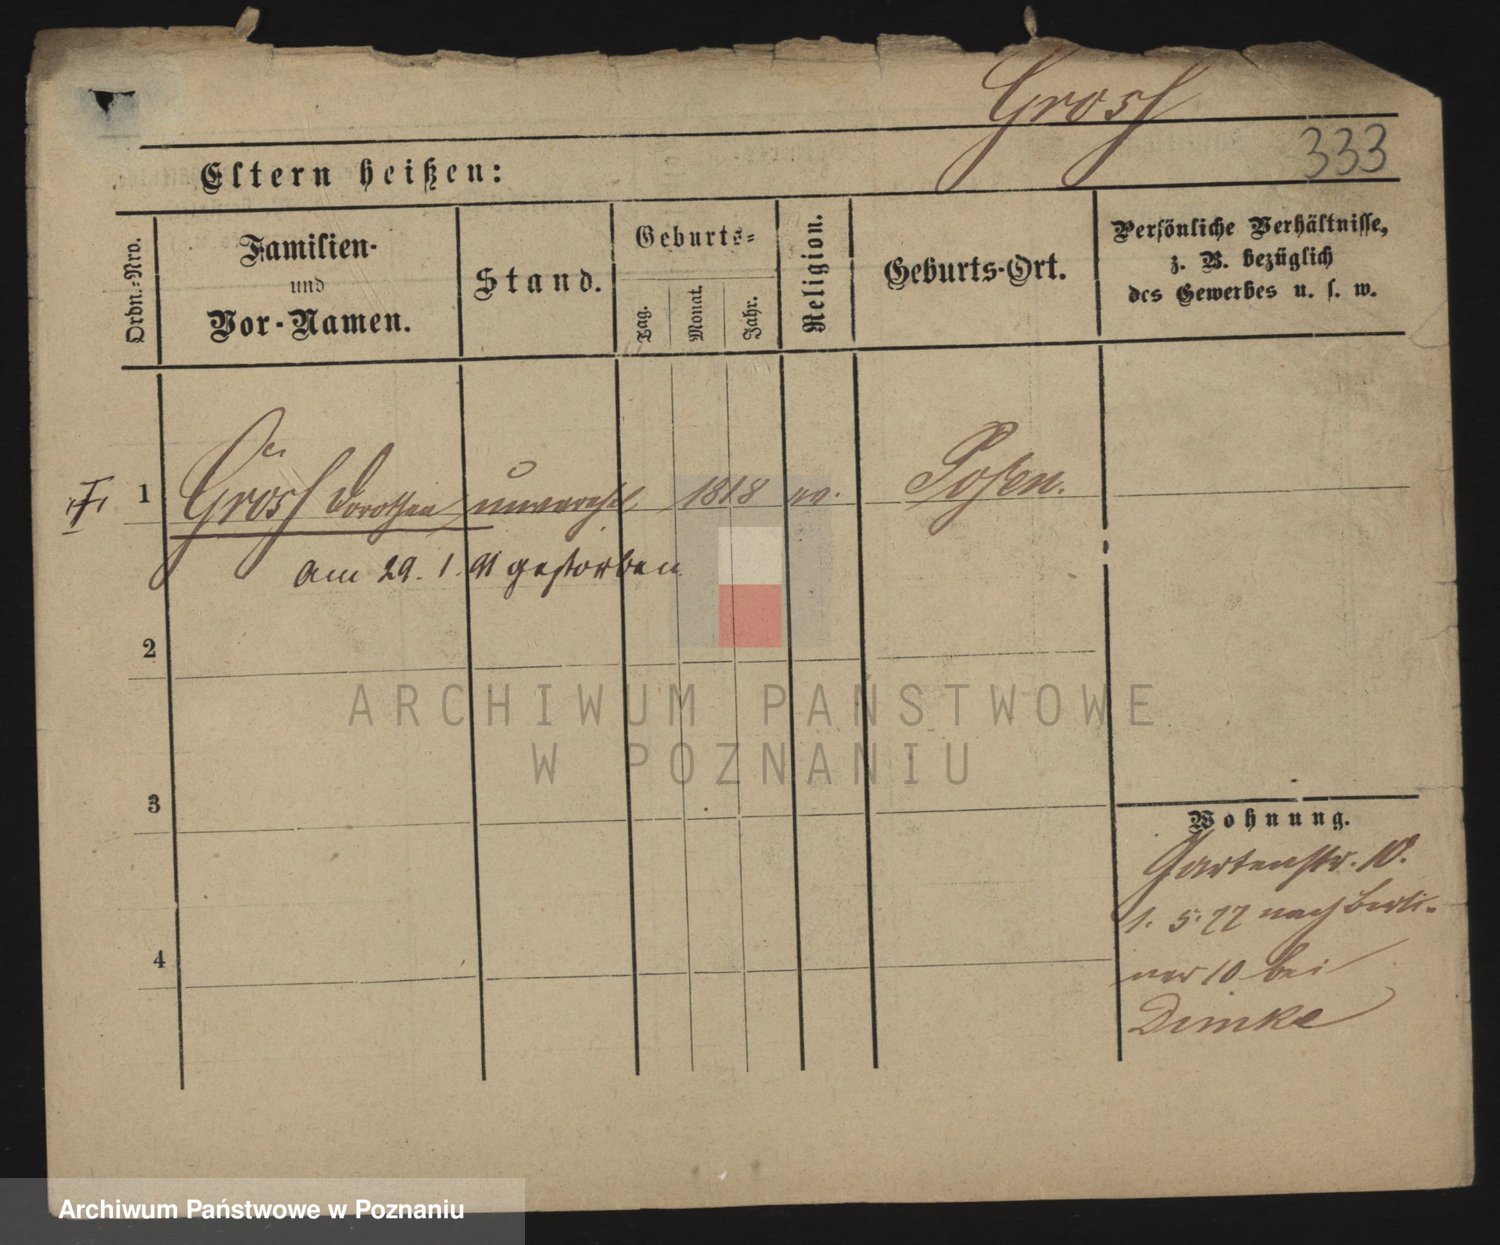 Grosf
333
Eltern heißen:
Ordn.-Nro.
Familien-
und
Vor-Namen.
Stand.
Geburts-
Tag.
Monat.
Jahr.
Religion.
Geburts-Ort.
Persönliche Verhältnisse,
z. B. bezüglich
des Gewerbes u. s. w.
1 Grosf Dorothea unverehel 1818 ev. Posen.
am 29. 1. 91 gestorben
2
ARCHIWUM PAŃSTWOWE
W POZNANIU
3
Wohnung.
Gartenstr. 10.
1. 5. 77 nach Berli-
ner 10 bei
Dimke
4
Archiwum Państwowe w Poznaniu